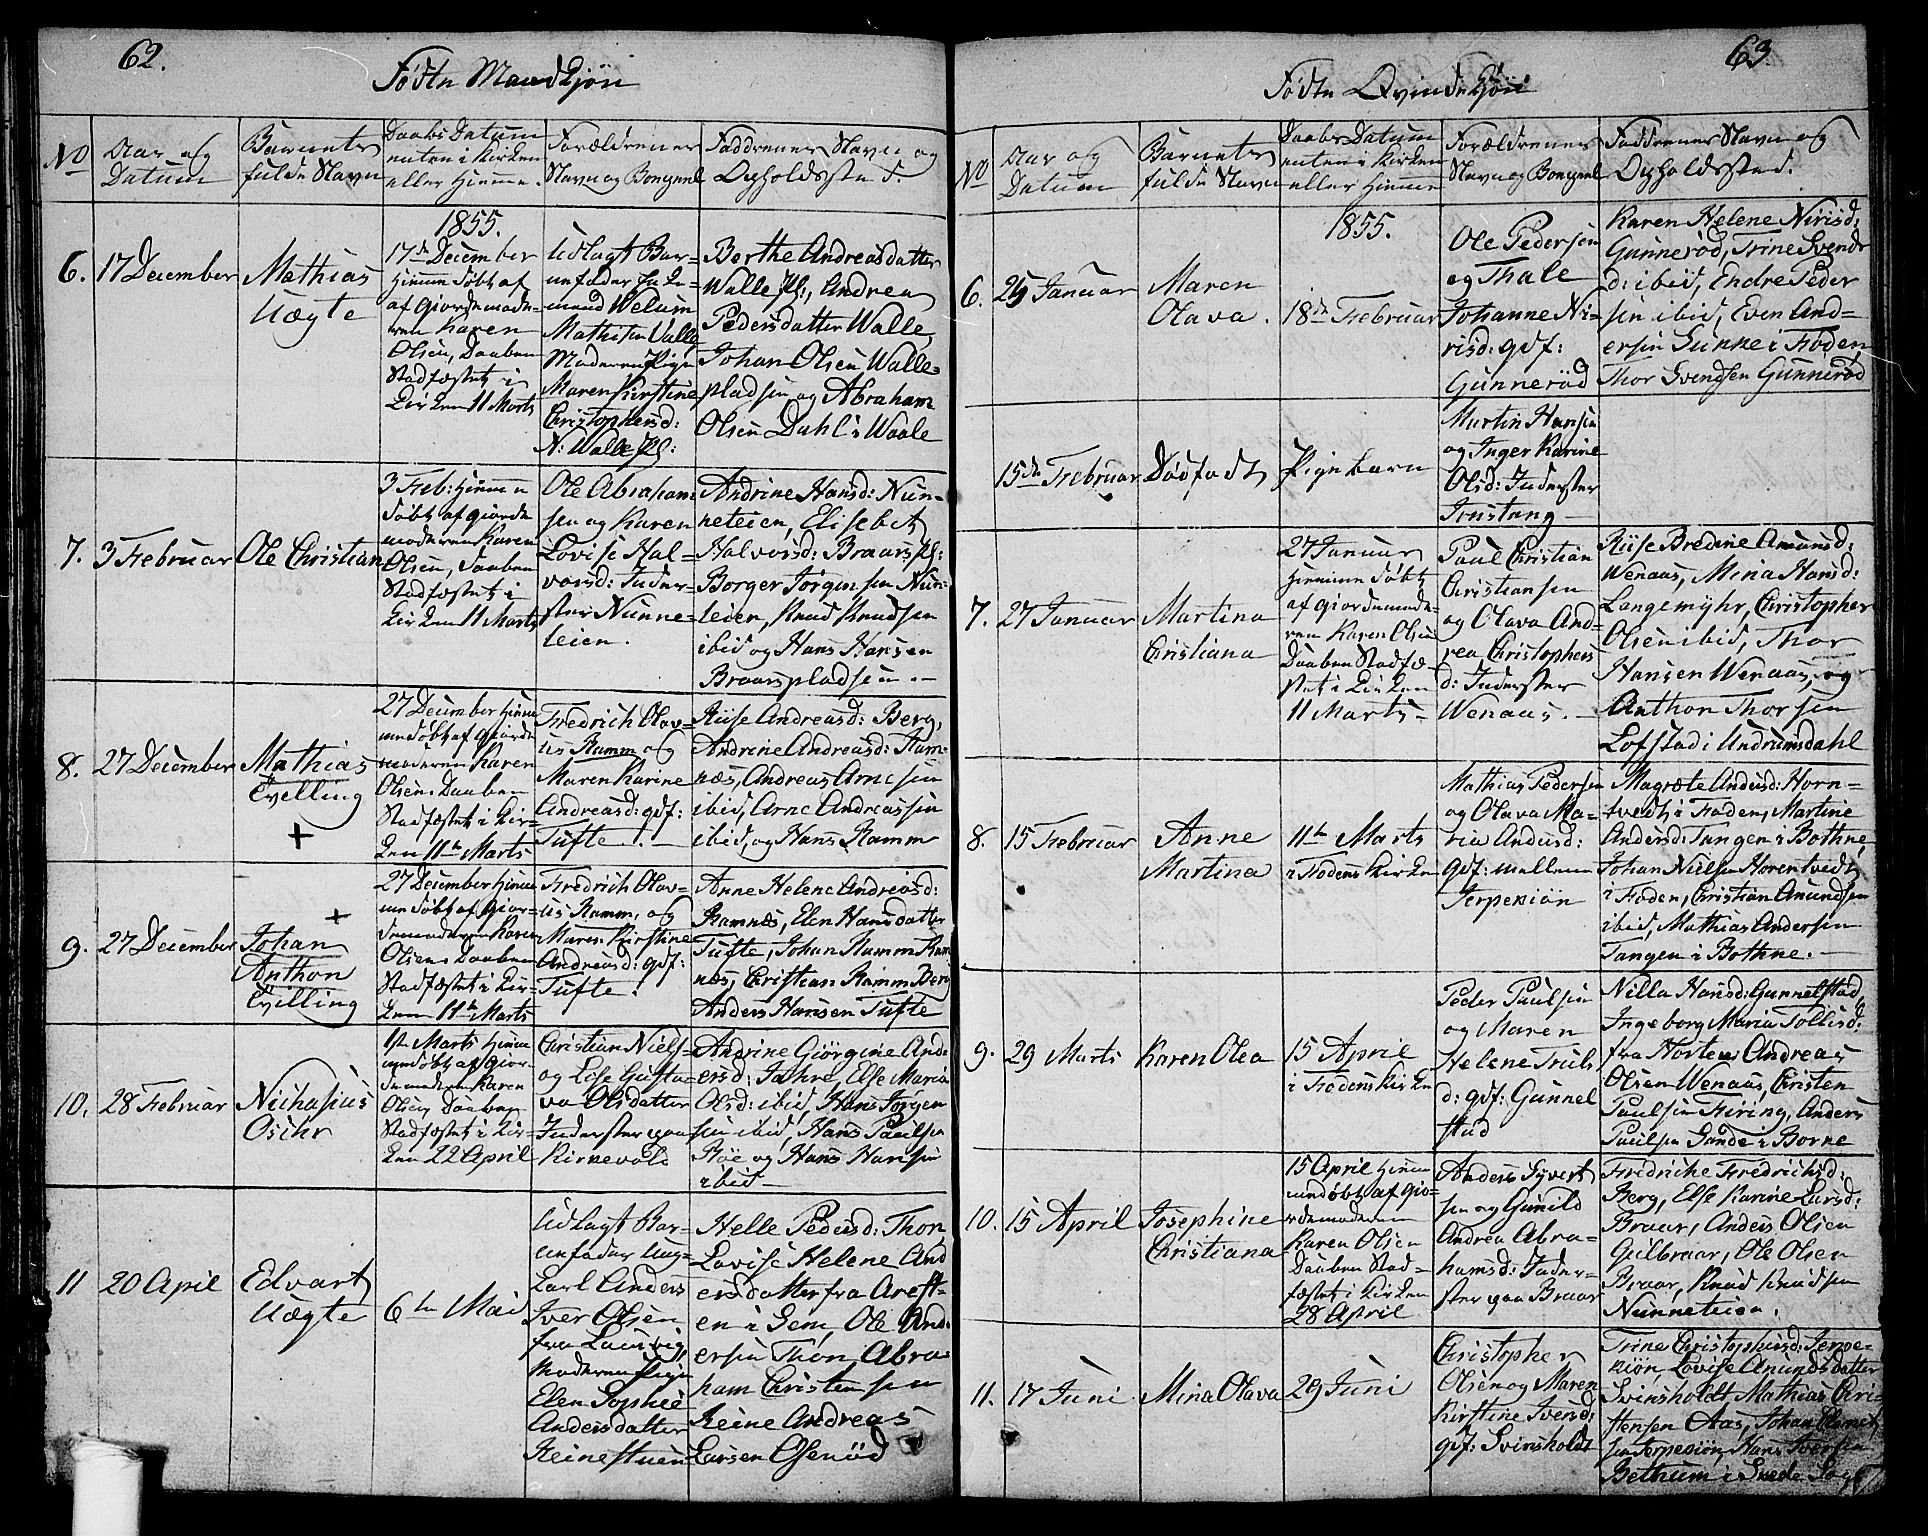 62.
Födte Mandkjön
No
Aar og
Datum
Barnets
fulde Navn
Daabs Datum
enten i Kirken
eller Hiemme.
Forældrenes
Navn og Borgerl
Faddrenes Navn og
Opholdssted.
1855.
6.
17 December
Mathias
Uægte
17de December
hiemme döbt af
af Giordemode-
ren Karen
Olsen, Daaben
Stadfæstet i
Kirken 11 Marts
Udlagt Bar-
nefader
mand
Mathisen Valle
Moderen Pige
Maren Kirstine
Christophersd:
N: Walle Pl:
Berthe Andreasdatter
Walle Pl:, Andrea
Pedersdatter Walle,
Johan Olsen Walle-
pladsen og Abraham
Olsen Dahl's Waale
7.
3 Februar
Ole Christian
3 Feb: hiemme
döbt af Giorde
moderen Karen
Olsen, Daaben
Stadfæstet i
Kirken 11 Marts
Ole Abraham-
sen og Karen
Lovise Hal-
vorsd: Inder-
ster Nunne-
teien.
Andrine Hansd: Nun-
neteien, Elisebet
Halvorsd: Braarspl:
Borger Jörgensen Nun-
teien, Knud Knudsen
ibid og Hans Hansen
Braarspladsen.-
8.
27 December
Mathias
Tvilling
+
27 December hiem
me döbt af Giorde
moderen Karen
Olsen Daaben
Stadfæstet i Kir-
ken 11te Marts
Fredrich Olav-
us Ramm og
Maren Karine
Andreasd: gdf:
Tufte.
Riise Andreasd: Berg,
Andrine Andreasd: Ram-
næs, Andreas Arnesen
ibid, Arne Andreassen
ibid, og Hans Ramm
9.
27 December
+
Johan
Anthon
Tvilling
27 December hiem
me döbt af Gior-
demoderen Karen
Olsen Daaben
Stadfæstet i Kir-
ken 11te Marts
Fredrich Olav-
us Ramm, og
Maren Kirstine
Andreasd: gdf:
Tufte.
Anne Helene Andreasd:
Ramnæs, Elen Hansdatter
Tufte, Johan Ramm Ram
næs, Christian Ramm Berg
Anders Hansen Tufte
10.
28 Februar
Nichasius
Oschr
1ste Marts hiem
me döbt af Gior-
demoderen Karen
Olsen Daaben
Stadfæstet i Kir-
ken 22 April
Christian Niels-
og Lise Gusta-
va Olsdatter
Inderster paa
Kirkevole
Andrine Giörgine And-
ersd: Jahre, Else Maria
Olsd: ibid, Hans Jörgen
sen ibid, Hans Paulsen
Röe og Hans Hansen
ibid
11
20 April
Edvart
Uægte
6te Mai
Udlagt Bar-
nefader Ung-
karl Anders
Iver Olsen
fra Laurvig,
Moderen Pige
Elen Sophie
Andersdatter
Reinestuen
Helle Pedersd: Thon
Lovise Helene And
ersdatter fra Areft-
en i Sem, Ole And-
ersen Thon, Abra-
ham Christensen
Reine Andreas
Larsen Olsenöd
63.
Födte Qvindekjön
No
Aar og
Datum
Barnets
fulde Navn
Daabs Datum
enten i Kirken
eller Hiemme
Forældrenes
Navn og Borgerl
Faddrenes Navn og
Opholdssted.
1855.
6.
25 Januar
Maren
Olava.
18de Februar
Ole Pedersen
og Thale
Johanne Ni-
risd: gdf:
Gunneröd
Karen Helene Nirisd:
Gunneröd, Trine Svends
d: ibid, Endre Peder
sen ibid, Even And-
ersen Lunke i Foden
Thor Svendsen Gunneröd
15de Februar
Dödfödt
Pigebarn
Martin Hansen
og Inger Karine
Olsd: Inderster
Ivnstang
7.
27 Januar
Martina
Cristiana
27 Januar
hiemme döbt
af Giordemode-
ren Karen Olsen
Daaben Stadfæ-
stet i Kirken
11 Marts-
Paul Christian
Christiansen
og Olava And-
rea Christophers
d: Inderster
Wenaas.-
Riise Bredine Amunsd:
Wenaas, Mina Hansd:
Langemyhr, Christopher
Olsen ibid, Thor
Hansen Wenaas, og
Anthon Thorsen
Lofstad i Undrumsdahl
8.
15 Februar
Anne
Martina
11te Marts
i Fodens Kirken
Mathias Pedersen
og Olava Ma-
ria Andersd:
gdf: mellem
Jerpekiön
Magrete Andersd: Horn-
tvedt i Foden, Martine
Andersd: Tangen i Bothne,
Johan Nielsen Horentvedt
i Foden, Christian Amundsen
ibid, Mathias Andersen
Tangen i Bothne.-
9.
29 Marts
Karen Olea
15 April
i Fodens Kirken
Peder Paulsen
og Maren
Helene Truls
d: gdf: Gunnel
stad
Nilla Hansd: Gunnelstad,
Ingeborg Maria Tollisd:
fra Horten, Andreas
Olsen Wenaas, Christen
Paulsen Firing, Anders
Paulsen Sande i Borne
10.
15 April
Josephine
Christiana
15 April hiem
mendöbt af Gio-
rdemoderen
Karen Olsen
Daaben Stad-
fæstet i Kirken
28 April
Anders Syvert
sen og Gunild
Andrea Abra-
hamsd: Inder-
ster paa Braar
Fredriche Fredrichsd:
Berg, Else Karine Larsd:
Braar, Anders Olsen
Gulbraar, Ole Olsen
Braar, Knud Knudsen
Nunneteien.
11.
17 Juni
Mina Olava
29 Juni
Christopher
Olsen og Maren
Kirstine Iversd:
gdf: Svinsholdt
Trine Christophersd: Jerpe-
kiön, Lovise Amundsdatter
Svinsholdt Mathias Chri-
stensen Aas, Johan Clemet
sen Jerpekiön, Hans Iversen
Bettum i Svede Sogn